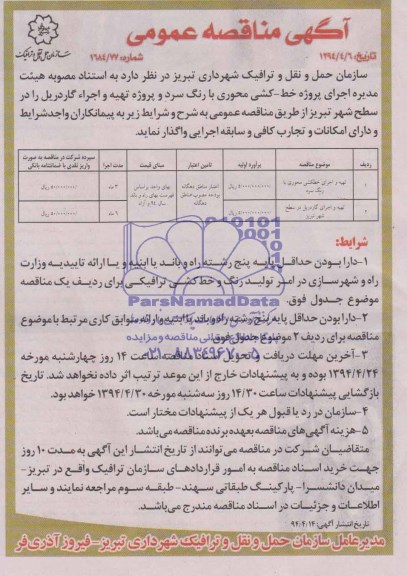 آگهی مناقصه عمومی
سازمان حمل و نقل و ترافیک
تاریخ: ۱۳۹۴/۴/۶
شماره: ۱۶۸۴/۷۷
سازمان حمل و نقل و ترافیک شهرداری تبریز در نظر دارد به استناد مصوبه هیئت
مدیره اجرای پروژه خط-کشی محوری با رنگ سرد و پروژه تهیه و اجراء گاردریل را در
سطح شهر تبریز از طریق مناقصه عمومی به شرح و شرایط زیر به پیمانکاران واجد شرایط
و دارای امکانات و تجارب کافی و سابقه اجرایی واگذار نماید.
ردیف موضوع مناقصه برآورد اولیه تامین اعتبار مبنای قیمت مدت اجرا سپرده شرکت در مناقصه به صورت واریز نقدی یا ضمانتنامه بانکی
۱ تهیه و اجرای خطکشی محوری با رنگ سرد
۲ تهیه و اجرای گاردریل در سطح شهر تبریز
شرایط:
۱-دارا بودن حداقل پایه پنج رشته راه و باند یا ابنیه و یا ارائه تاییدیه وزارت
راه و شهرسازی در امر تولید رنگ و خط کشی ترافیکی برای ردیف یک مناقصه
موضوع جدول فوق.
ParsNamadData
۲-دارا بودن حداقل پایه پنج رشته راه و باند یا ابنیه و ارائه سوابق کاری مرتبط با موضوع
مناقصه برای ردیف ۲ موضوع جدول فوق.
۳-آخرین مهلت دریافت و تحویل اسناد مناقصه ساعت ۱۴ روز چهارشنبه مورخه
۱۳۹۴/۴/۲۴ بوده و به پیشنهادات خارج از این موعد ترتیب اثر داده نخواهد شد. تاریخ
بازگشایی پیشنهادات ساعت ۱۴/۳۰ روز سه‌شنبه مورخه ۱۳۹۴/۴/۳۰ خواهد بود.
۴-سازمان در رد یا قبول هر یک از پیشنهادات مختار است.
۵-هزینه آگهی های مناقصه بعهده برنده مناقصه می باشد.
متقاضیان شرکت در مناقصه می توانند از تاریخ انتشار این آگهی به مدت ۱۰ روز
جهت خرید اسناد مناقصه به امور قراردادهای سازمان ترافیک واقع در تبریز-
میدان دانشسرا- پارکینگ طبقاتی سهند- طبقه سوم مراجعه نمایند و سایر
اطلاعات و جزئیات در اسناد مناقصه مندرج می باشد.
تاریخ انتشار آگهی: ۹۴/۴/۱۴
مدیرعامل سازمان حمل و نقل و ترافیک شهرداری تبریز- فیروز آذری فر